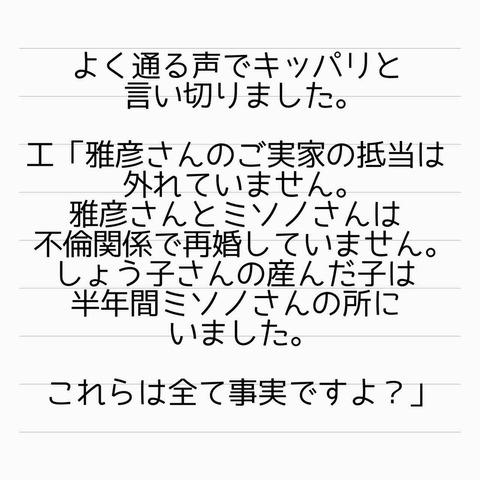 よく通る声でキッパリと
言い切りました。
工「雅彦さんのご実家の抵当は
外れていません。
雅彦さんとミソノさんは
不倫関係で再婚していません。
しょう子さんの産んだ子は
半年間ミソノさんの所に
いました。
これらは全て事実ですよ？」